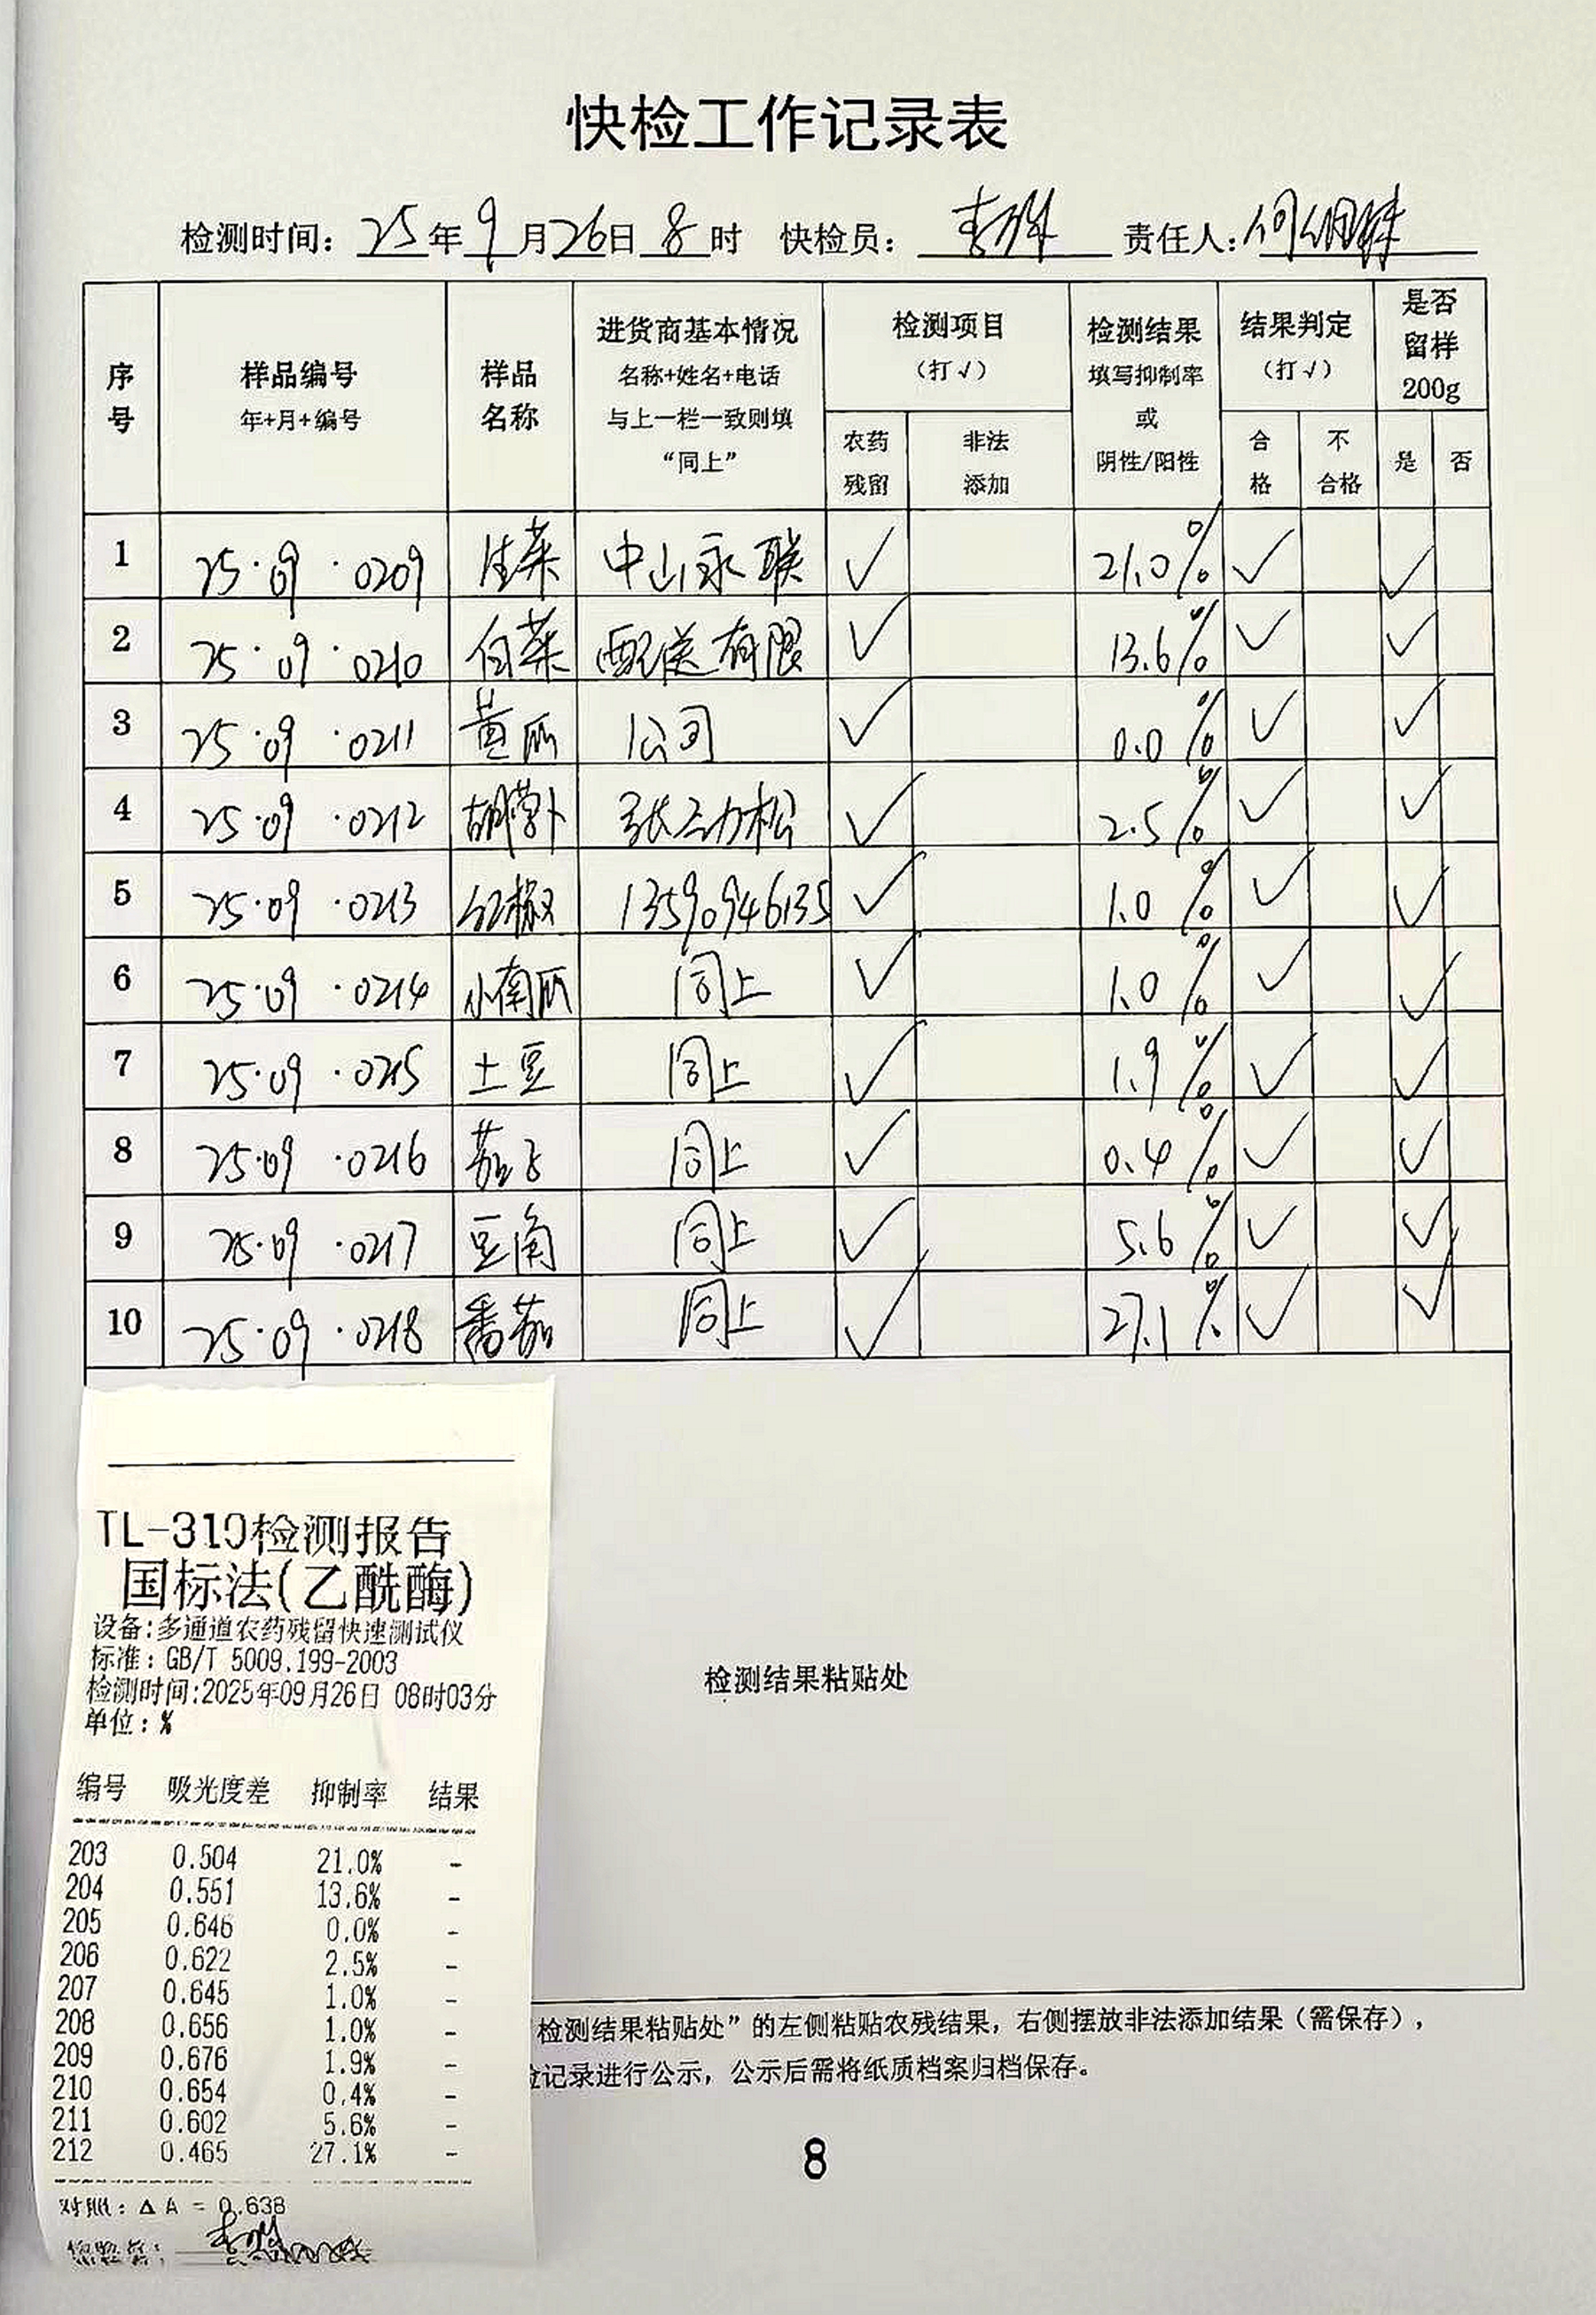 快检工作记录表
检测时间：25年9月26日8时 快检员： 责任人：
序号 样品编号 年+月+编号 样品名称 进货商基本情况 名称+姓名+电话 与上一栏一致则填“同上” 检测项目（打√） 农药残留 非法添加 检测结果 填写抑制率或阴性/阳性 结果判定（打√） 合格 不合格 是否留样200g 是 否
1 25·09·0209 生菜 中山永联 ✓ 21.0% ✓ ✓
2 25·09·0210 白菜 配送有限 ✓ 13.6% ✓ ✓
3 25·09·0211 黄瓜 公司 ✓ 0.0% ✓ ✓
4 25·09·0212 胡萝卜 张劲松 ✓ 2.5% ✓ ✓
5 25·09·0213 红椒 13590946135 ✓ 1.0% ✓ ✓
6 25·09·0214 小南瓜 同上 ✓ 1.0% ✓ ✓
7 25·09·0215 土豆 同上 ✓ 1.9% ✓ ✓
8 25·09·0216 茄子 同上 ✓ 0.4% ✓ ✓
9 25·09·0217 豆角 同上 ✓ 5.6% ✓ ✓
10 25·09·0218 番茄 同上 ✓ 27.1% ✓ ✓
TL-310检测报告
国标法(乙酰酶)
设备:多通道农药残留快速测试仪
标准：GB/T 5009.199-2003
检测时间:2025年09月26日 08时03分
单位：%
编号 吸光度差 抑制率 结果
203 0.504 21.0% -
204 0.551 13.6% -
205 0.646 0.0% -
206 0.622 2.5% -
207 0.645 1.0% -
208 0.656 1.0% -
209 0.676 1.9% -
210 0.654 0.4% -
211 0.602 5.6% -
212 0.465 27.1% -
对照：Δ A = 0.638
检测结果粘贴处
检测结果粘贴处”的左侧粘贴农残结果，右侧摆放非法添加结果（需保存），
记录进行公示，公示后需将纸质档案归档保存。
8